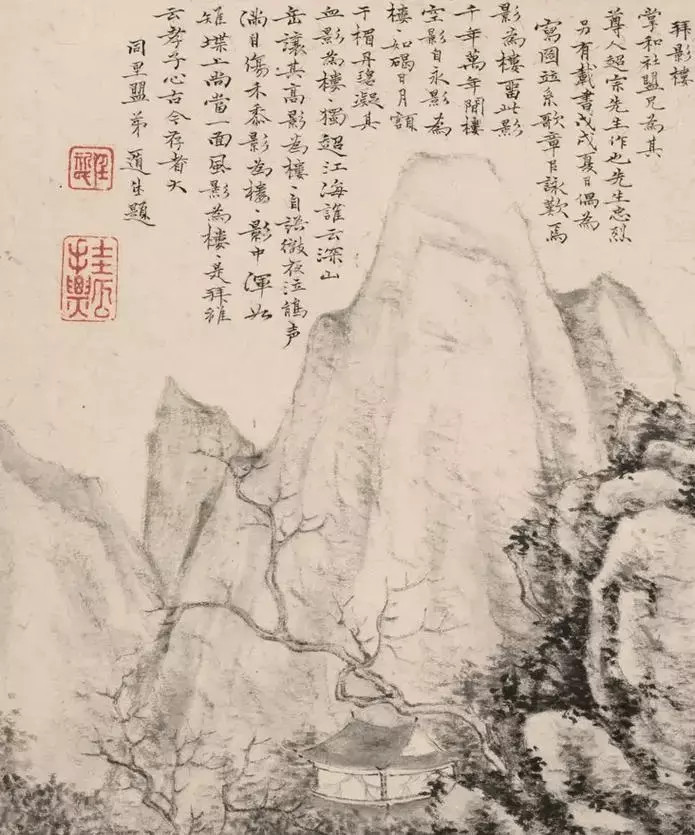 拜影樓
掌和社盟兄為其
尊人超宗先生作也先生忠烈
另有載書戊戌夏日偶為
寫圖並系歌章用詠歎焉
影為樓、留此影
千年萬年閒樓
空影自永影為
樓、如礪日月額
于楣丹凝其
血影為樓、獨超江海誰云深山
岳讓其高影為樓、自語徹夜泣鵑声
滿目傷禾黍影為樓、影中渾如
雉堞上尚當一面風影為樓、是拜維
云孝子心古今存者大
同里盟弟道生題